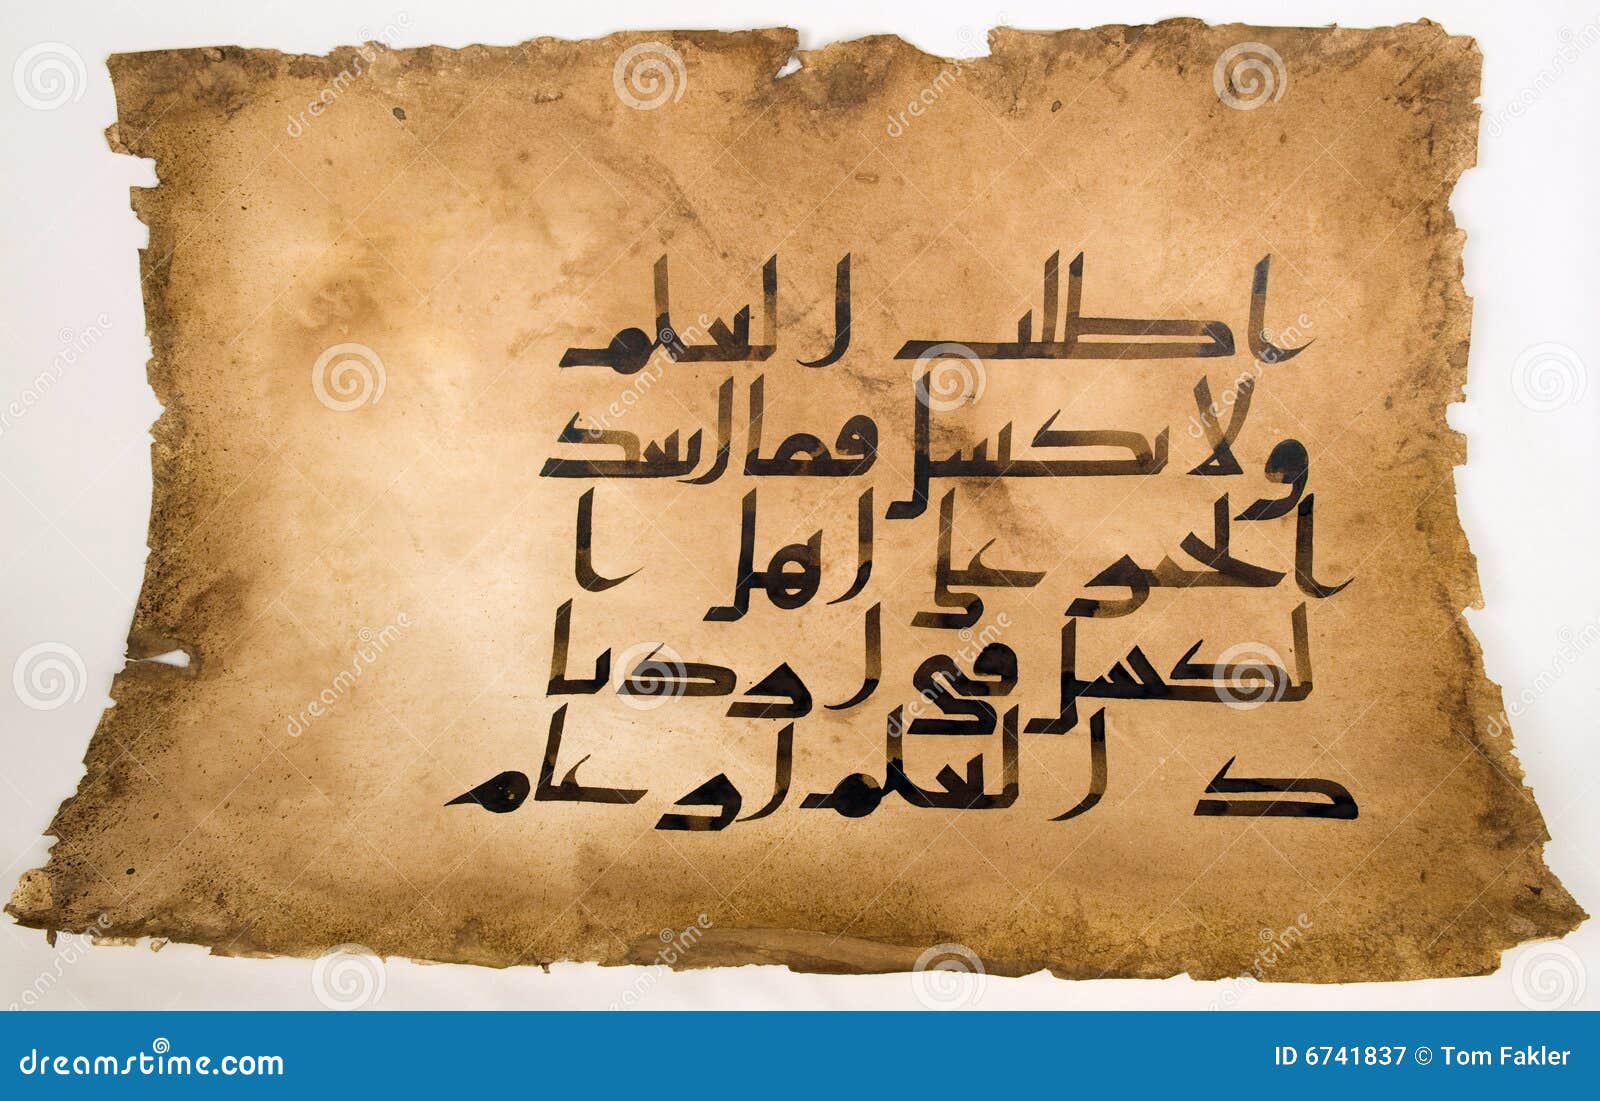 اطلب العلم
ولا تكسل فما ابعد
الخير على اهل ا
لكسل في ازديا
د العلم ارغام
dreamstime.com
ID 6741837 © Tom Fakler